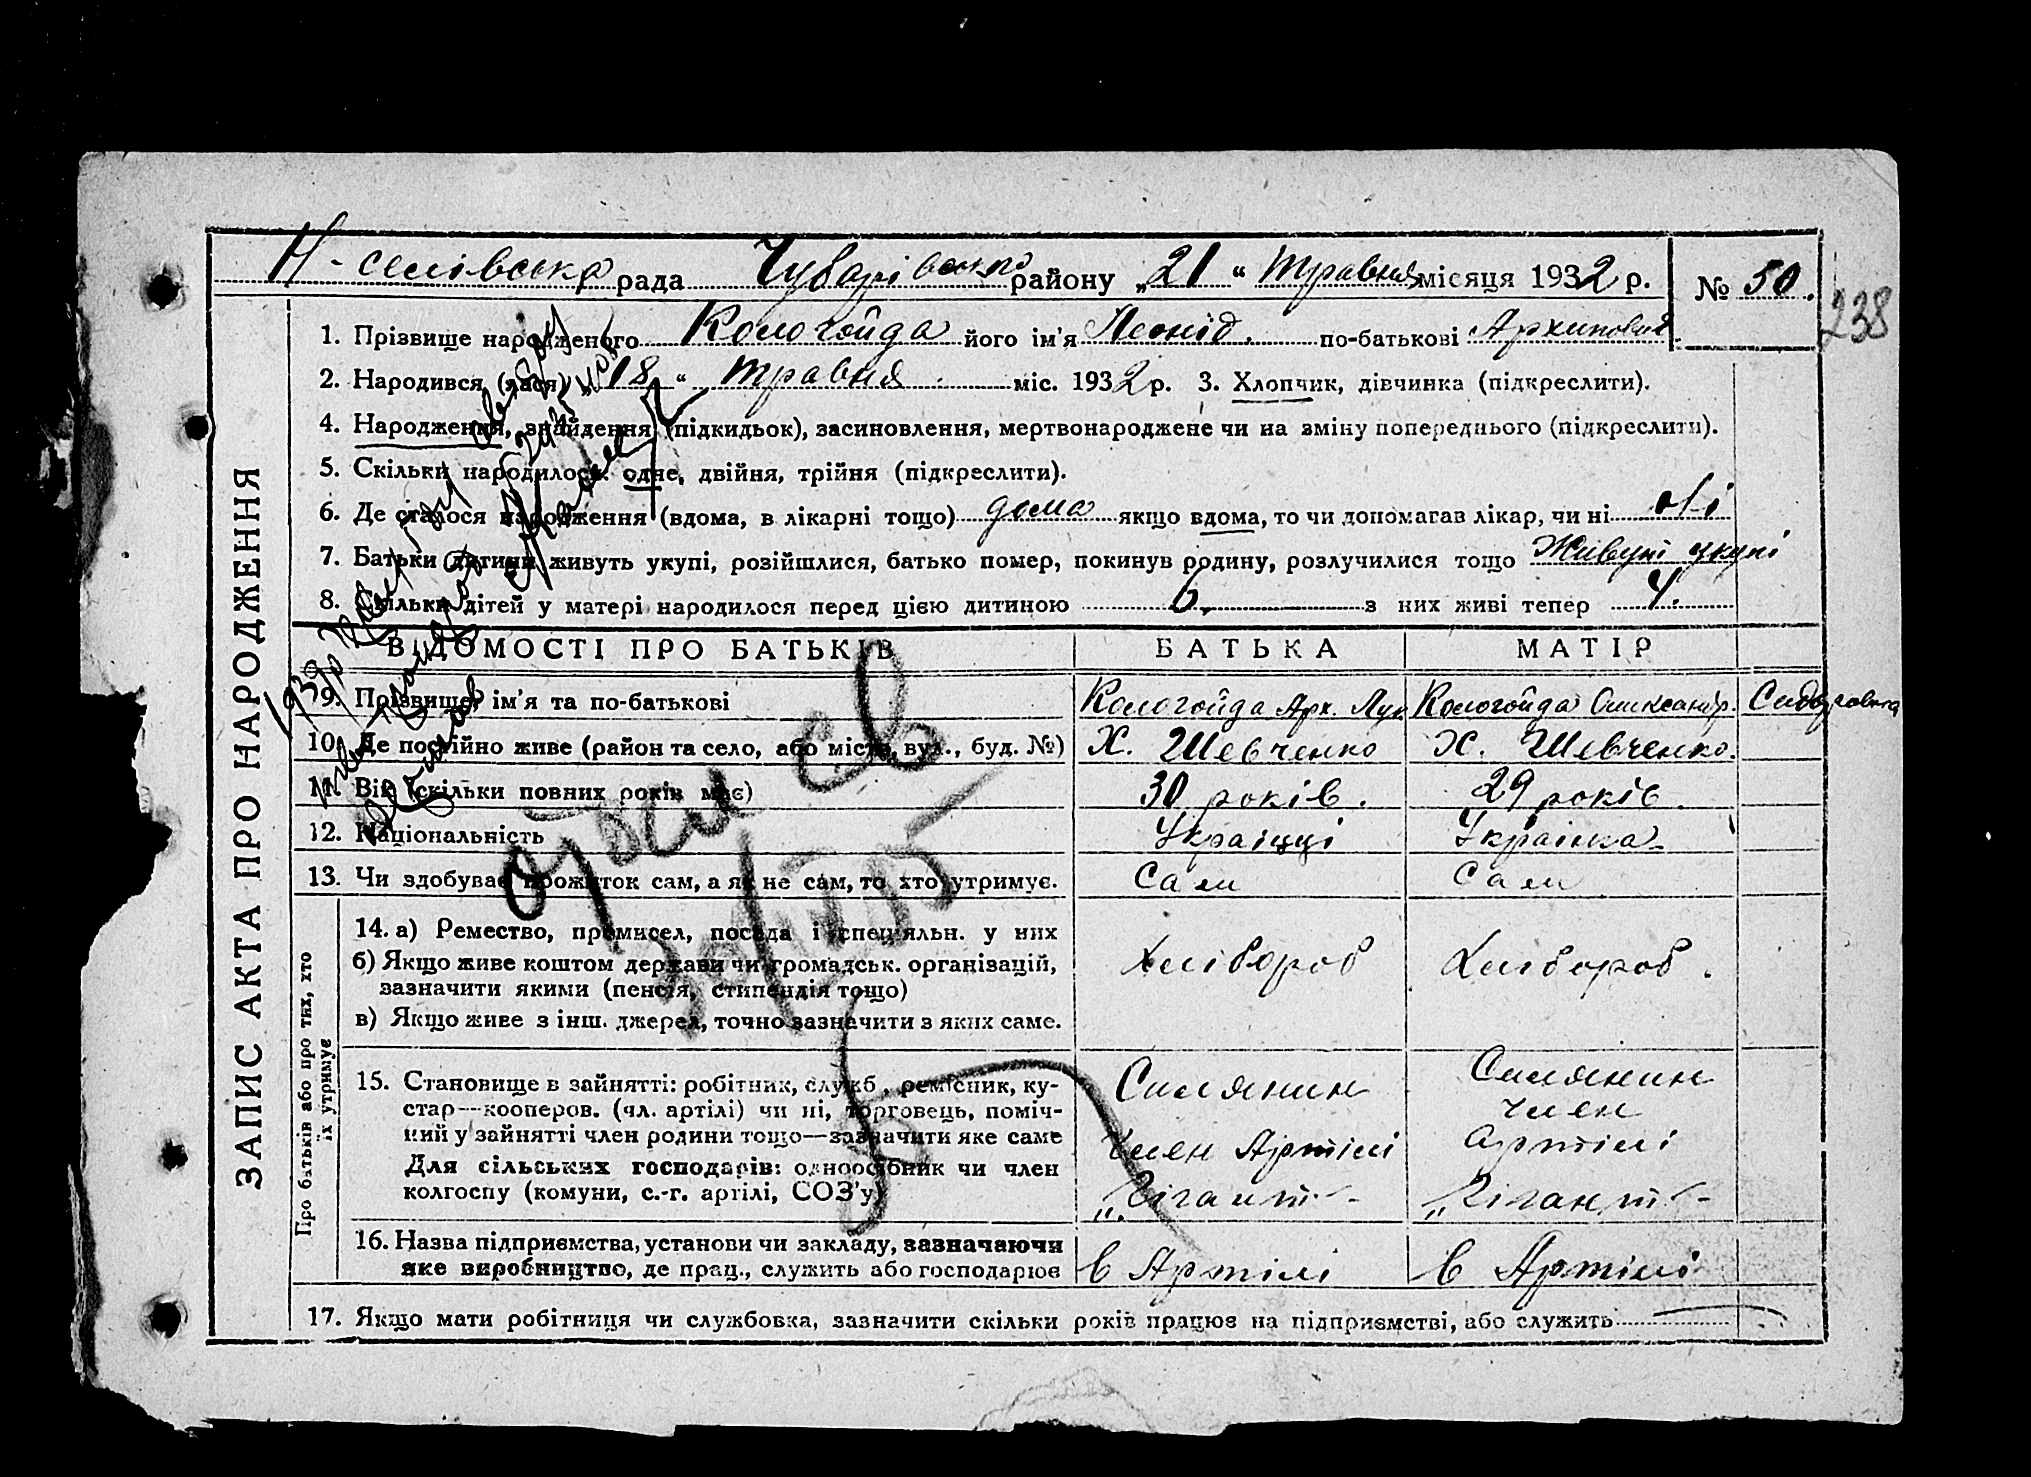 Н-селівська рада Чубарівського району „21“ Травня місяця 1932 р. № 50.
238
ЗАПИС АКТА ПРО НАРОДЖЕННЯ
1. Прізвище народженого Кологойда його ім'я Леонід. по-батькові Архипович
2. Народився (лася) „18“ Травня міс. 1932 р. 3. Хлопчик, дівчинка (підкреслити).
4. Народження, знайдення (підкидьок), засиновлення, мертвонароджене чи на зміну попереднього (підкреслити).
5. Скільки народилося: одне, двійня, трійня (підкреслити).
6. Де сталося народження (вдома, в лікарні тощо) дома якщо вдома, то чи допомагав лікар, чи ні Ні
7. Батьки дитини живуть укупі, розійшлися, батько помер, покинув родину, розлучилися тощо Живуть укупі
8. Скільки дітей у матері народилося перед цією дитиною 6. з них живі тепер 4.
ВІДОМОСТІ ПРО БАТЬКІВ БАТЬКА МАТІР
9. Прізвище, ім'я та по-батькові Кологойда Арх. Лук Кологойда Олександр. Сидоровна
10. Де постійно живе (район та село, або місто, вул., буд. №) Х. Шевченко Х. Шевченко.
11. Вік (скільки повних років має) 30 років. 29 років.
12. Національність Українці Українка
13. Чи здобуває прожиток сам, а як не сам, то хто утримує. Сам Сам
Про батьків або про тих, хто їх утримує
14. а) Ремество, промисел, посада і спеціяльн. у них
б) Якщо живе коштом держави чи громадськ. організацій,
зазначити якими (пенсія, стипендія тощо)
в) Якщо живе з інш. джерел, точно зазначити з яких саме.
Хлібороб Хлібороб.
15. Становище в зайнятті: робітник, служб., ремісник, ку-
стар—кооперов. (чл. артілі) чи ні, торговець, поміч-
ний у зайнятті член родини тощо—зазначити яке саме
Для сільських господарів: одноосібник чи член
колгоспу (комуни, с.-г. артілі, СОЗ'у)
Селянин
Член Артілі
„Гігант“
Селянин
член
артілі
„Гігант“
16. Назва підприємства, установи чи закладу, зазначаючи
яке виробництво, де прац., служить або господарює
в Артілі в Артілі
17. Якщо мати робітниця чи службовка, зазначити скільки років працює на підприємстві, або служить
1939